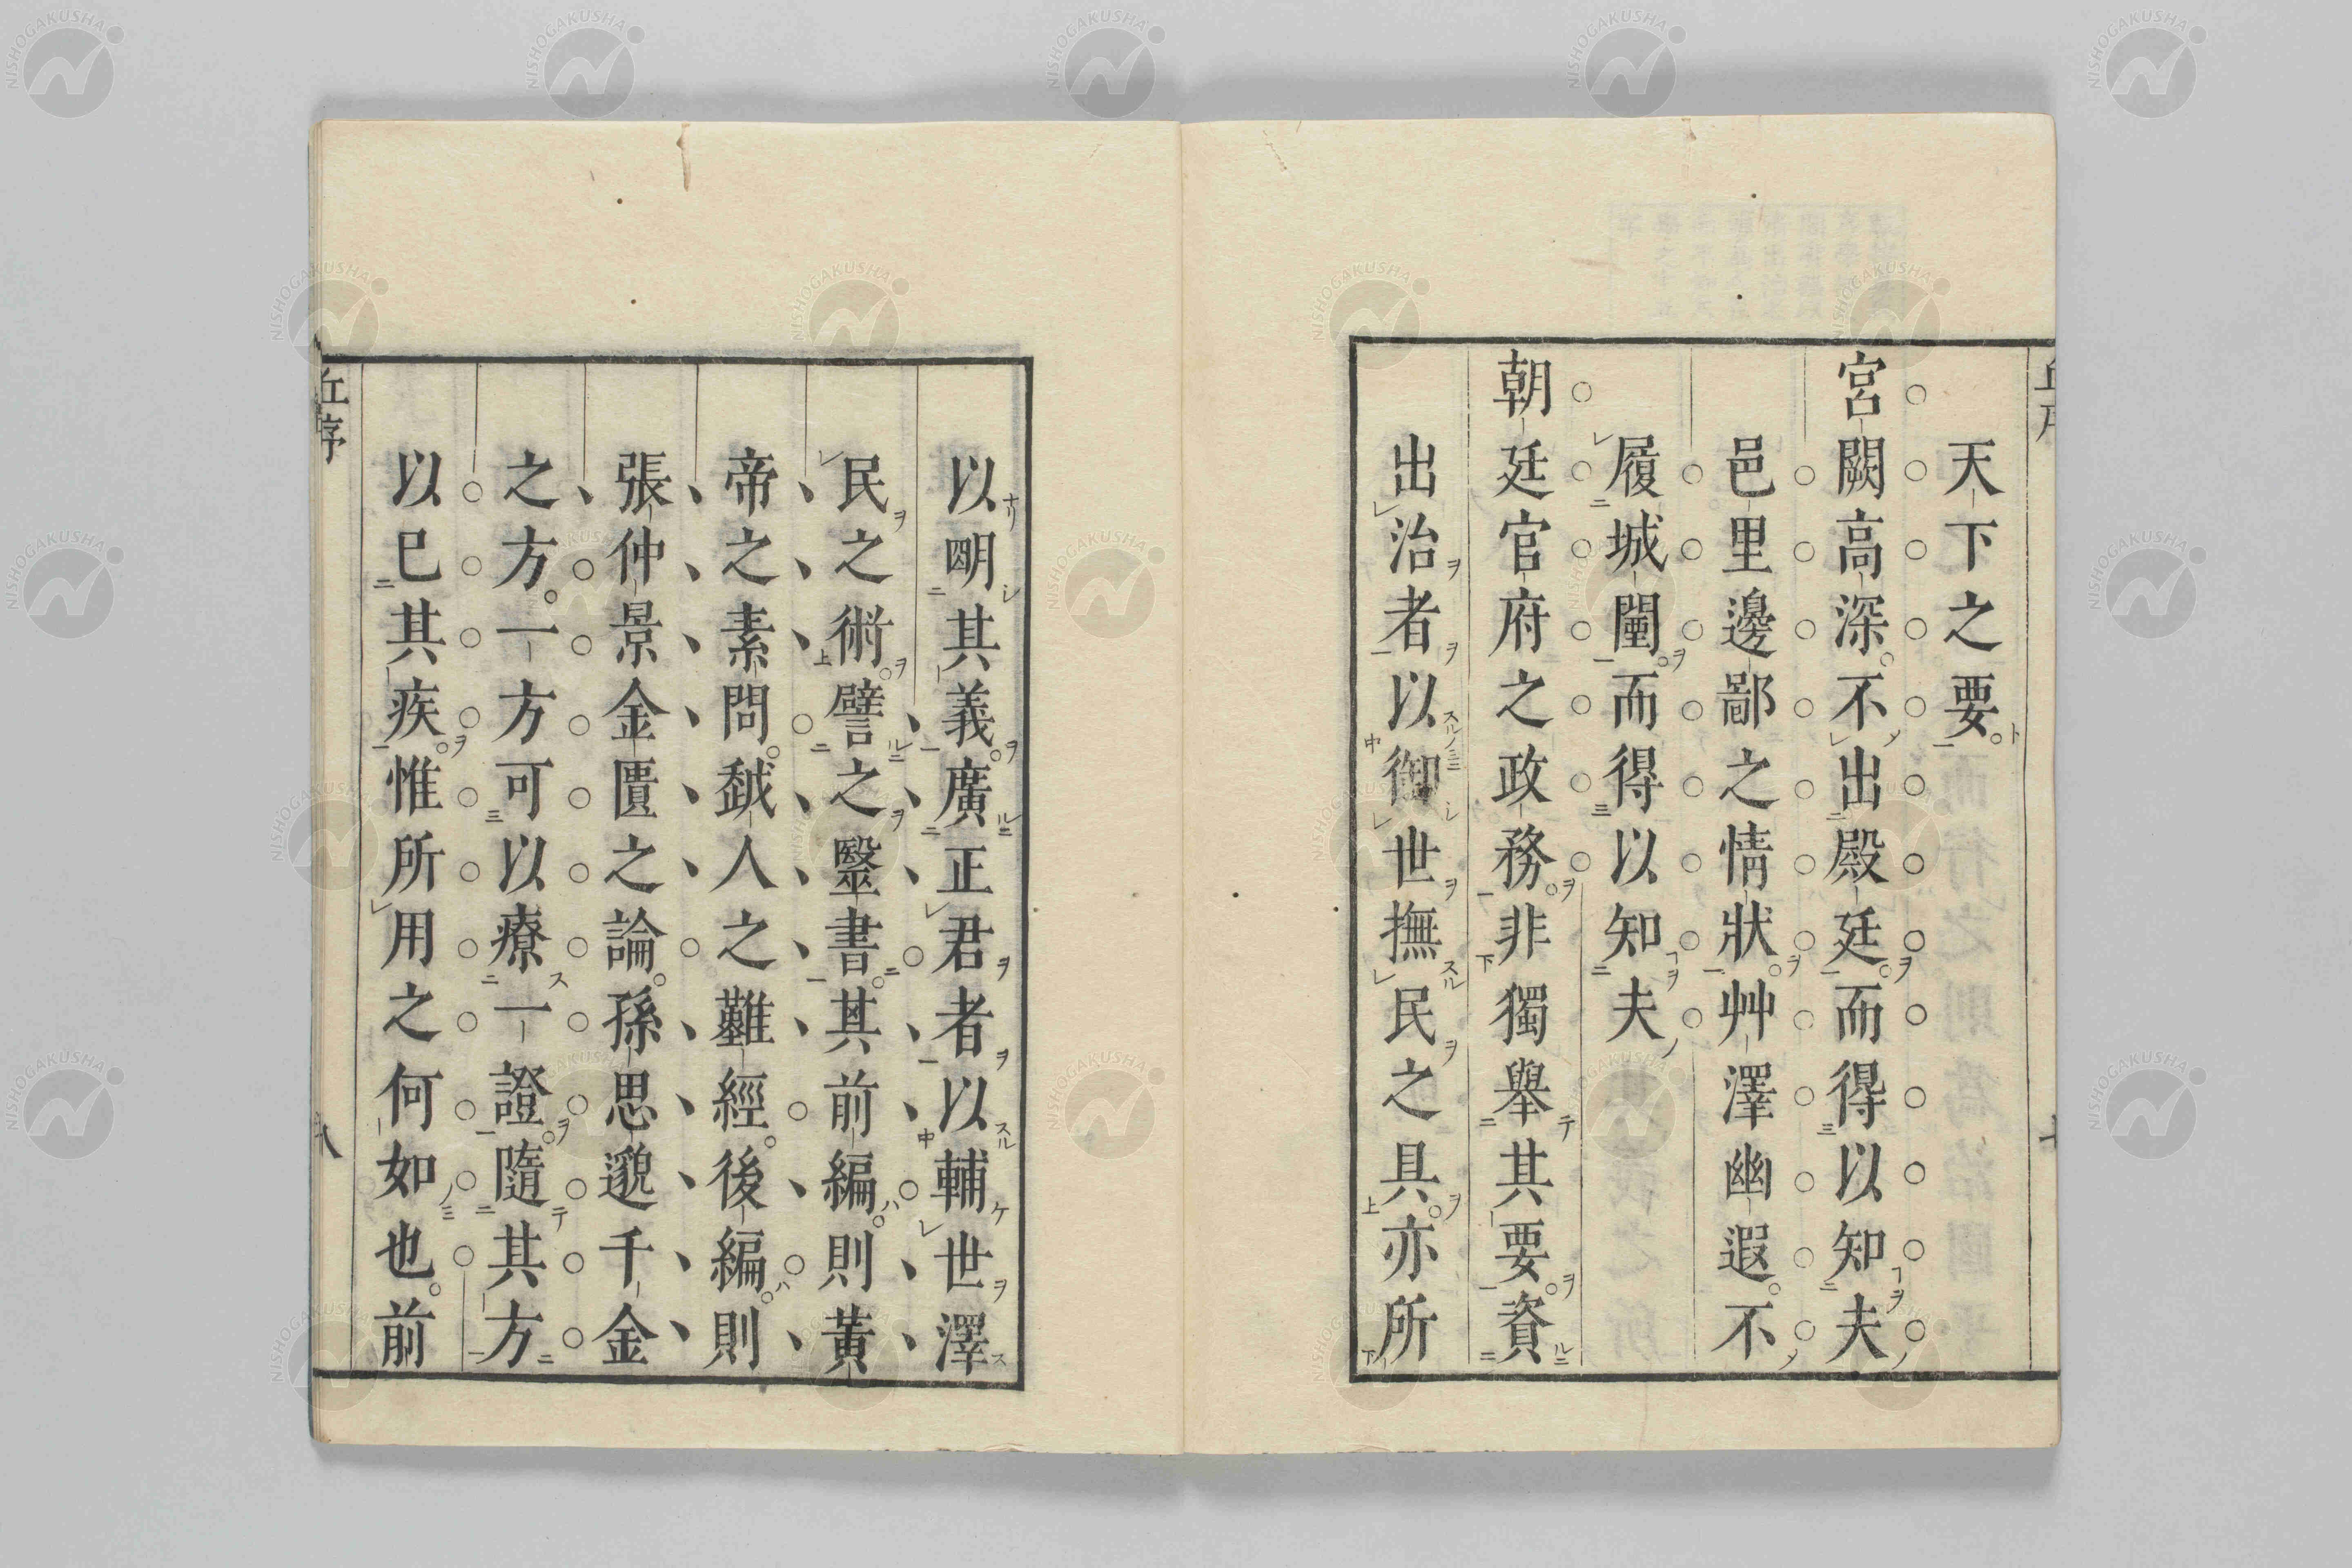 天下之要。
宮闕高深。不出殿廷。而得以知夫
邑里邊鄙之情狀。艸澤幽遐。不
履城闉。而得以知夫
朝廷官府之政務。非獨舉其要。資
出治者以御世撫民之具。亦所
以明其義。廣正君者以輔世澤
民之術。譬之醫書。其前編。則黃
帝之素問。越人之難經。後編。則
張仲景金匱之論。孫思邈千金
之方。一方可以療一證。隨其方
以已其疾。惟所用之何如也。前
丘序
八
NISHOGAKUSHA